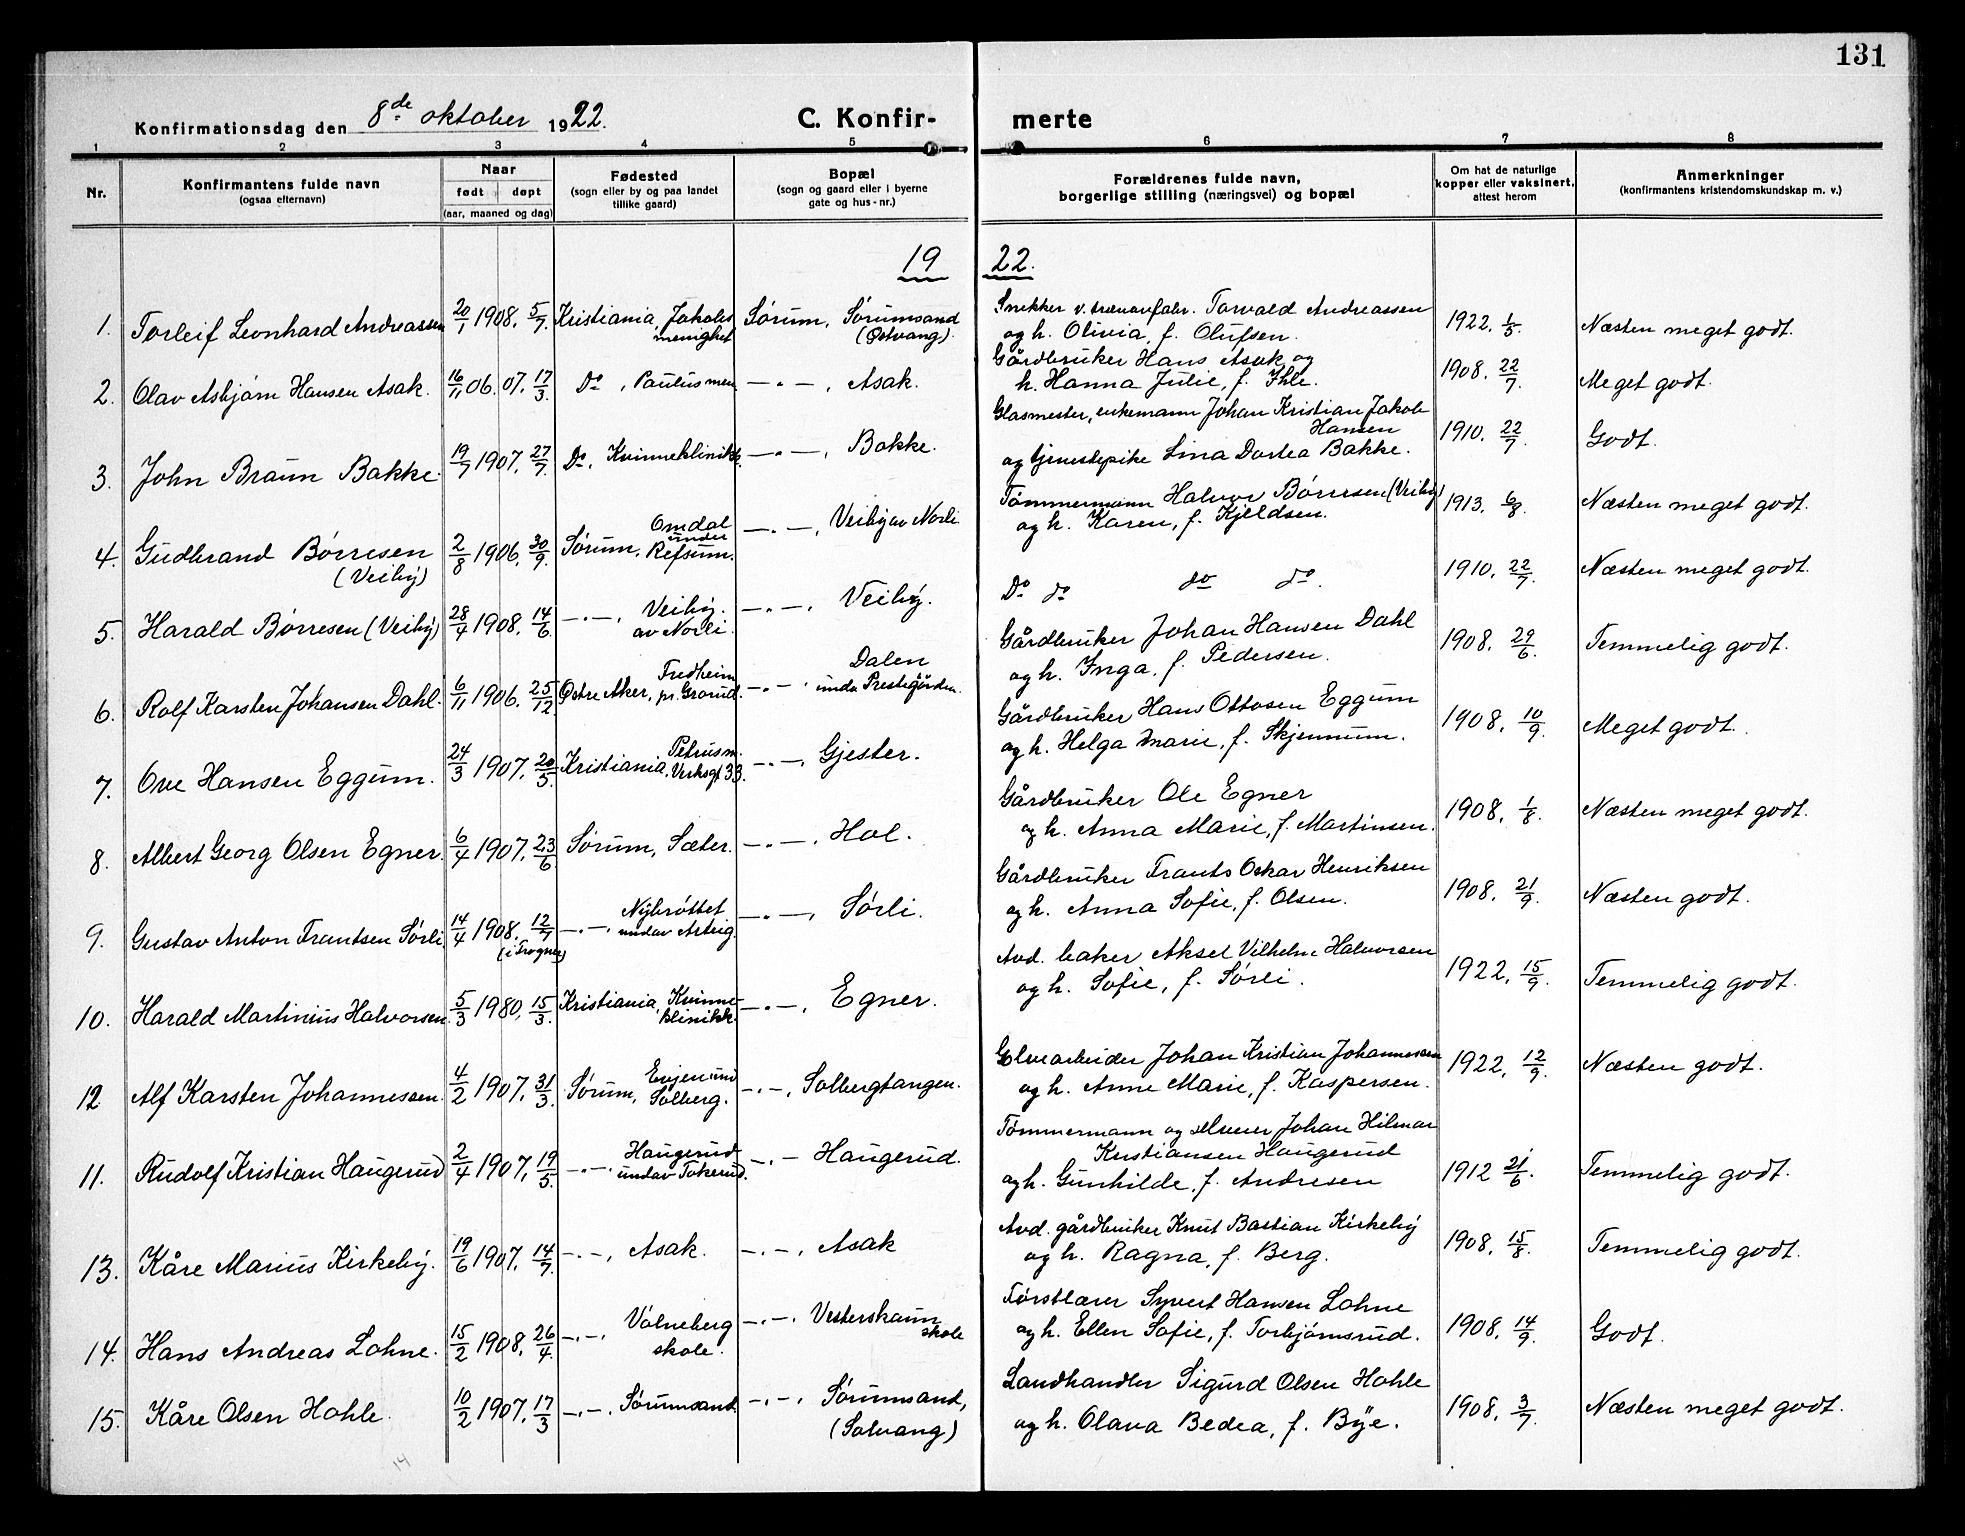 131
Konfirmationsdag den 8de oktober 1922. C. Konfir- merte
1 2 3 4 5 6 7 8
Nr. Konfirmantens fulde navn (ogsaa efternavn) Naar født døpt (aar, maaned og dag) Fødested (sogn eller by og paa landet tillike gaard) Bopæl (sogn og gaard eller i byerne gate og hus-nr.) Forældrenes fulde navn, borgerlige stilling (næringsvei) og bopæl Om hat de naturlige kopper eller vaksinert, attest herom Anmerkninger (konfirmantens kristendomskundskap m. v.)
19 22.
1. Torleif Leonhard Andreassen 20/1 1908. 5/7. Kristiania, Jakobs menighet Sørum, Sørumsand (Østvang). Snekker v. trævarefabr. Torvald Andreassen og h. Olivia, f. Olufsen. 1922. 1/5. Næsten meget godt.
2. Olav Asbjørn Hansen Asak. 16/11 06. 07. 17/3. Do, Paulus men —"—, Asak. Gårdbruker Hans Asak og h. Hanna Julie, f. Ihle. 1908. 22/7. Meget godt.
3. John Braun Bakke. 19/7 1907. 27/7. Do, Kvinneklinikk. —"—, Bakke. Glasmester, enkemann Johan Kristian Jakob Hansen og tjenestepike Lina Dortea Bakke. 1910. 22/7. Godt.
4. Gudbrand Børresen (Veiby) 2/8 1906. 30/9. Sørum, Omdal under Refsum. —"—, Veiby av Norli Tømmermann Halvor Børresen (Veiby) og h. Karen, f. Kjeldsen. 1913. 6/8. Næsten meget godt.
5. Harald Børresen (Veiby) 28/4 1908. 14/6. —"—, Veiby. av Norli. —"—, Veiby. Do do do do. 1910. 22/7. Næsten meget godt.
6. Rolf Karsten Johansen Dahl. 6/11 1906. 25/12 Østre Aker, Fredheim pr. Grorud. —"—. Dalen under Prestegården. Gårdbruker Johan Hansen Dahl og h. Inga, f. Pedersen. 1908. 29/6. Temmelig godt.
7. Ove Hansen Eggum. 24/3 1907. 20/5. Kristiania, Petrusm. Verksgt 33. —"—, Gjester. Gårdbruker Hans Ottosen Eggum og h. Helga Marie, f. Skjennum. 1908. 10/9. Meget godt.
8. Albert Georg Olsen Egner. 6/4 1907. 23/6 Sørum, Sæter. —"—, Hol. Gårdbruker Ole Egner og h. Anna Marie, f. Martinsen. 1908. 1/8. Næsten meget godt.
9. Gustav Anton Frantsen Sørli 14/4 1908. 12/7 (i Frogner) —"—, Nybrottet under Asteig. —"—, Sørli. Gårdbruker Frants Oskar Henriksen og h. Anna Sofie, f. Olsen. 1908. 21/9. Næsten godt.
10. Harald Martinius Halvorsen. 5/3 1980. 15/3. Kristiania, Kvinneklinikk. —"—, Egner. Avd. baker Aksel Vilhelm Halvorsen og h. Sofie, f. Sørli. 1922. 15/9. Temmelig godt.
12 Alf Karsten Johannessen. 4/2 1907. 31/3. Sørum, Enjen und Solberg. —"—, Solbergtangen. Elvearbeider Johan Kristian Johannessen og h. Anne Marie, f. Kaspersen. 1922, 12/9. Næsten godt.
11. Rudolf Kristian Haugerud 2/4 1907. 19/5. —"—. Haugerud under Tokerud. —"— Haugerud. Tømmermann og Johan Hilmar Kristiansen Haugerud og h. Gunhilde, f. Andresen 1912 21/6. Temmelig godt.
13. Kåre Marius Kirkeby. 19/6 1907. 14/7. —"—, Asak. —"—, Asak Avd. gårdbruker Knut Bastian Kirkeby og h. Ragna, f. Berg. 1908. 15/8. Temmelig godt.
14. Hans Andreas Lohne. 15/2 1908. 26/4. —"—, Valneberg skole. —"—, Vesterskaun skole Førstlærer Syvert Hansen Lohne og h. Ellen Sofie, f. Torbjørnsrud. 1908. 14/9. Godt.
15. Kåre Olsen Hohle. 10/2 1907. 17/3 —"—. Sørumsand. —"—, Sørumsand, (Solvang) Landhandler Sigurd Olsen Hohle og h. Olava Bedea, f. Bye. 1908. 3/7. Næsten meget godt.
14